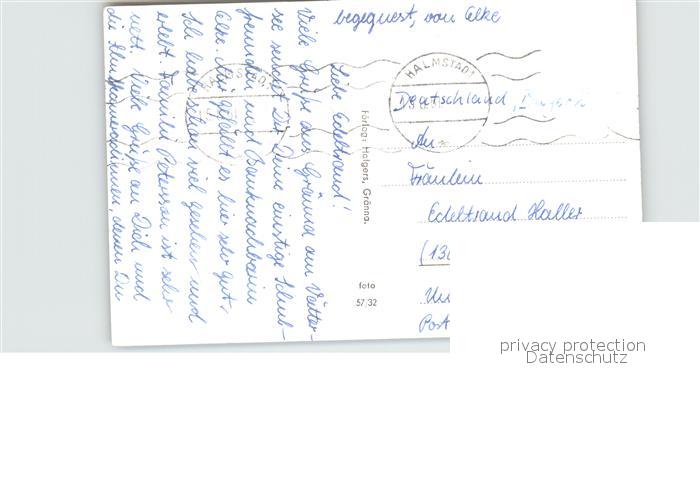 Liebe Edeltraud!
Viele Grüße aus Gränna am Vätter-
see sendet Dir Deine einstige Schul-
freundin und Banknachbarin
Elke. Mir gefällt es hier sehr gut.
Ich habe schon viel gesehen und
erlebt. Familie Petersson ist sehr
nett. Viele Grüße an Dich und
die Schulkameradinnen, denen Du
begegnest, von Elke
Förlag: Holgers, Gränna.
foto
57/32
HALMSTAD 1
HALMSTAD 1
Deutschland, Bayern
An
Fräulein
Edeltraud Haller
(13
Un
Post
privacy protection
Datenschutz